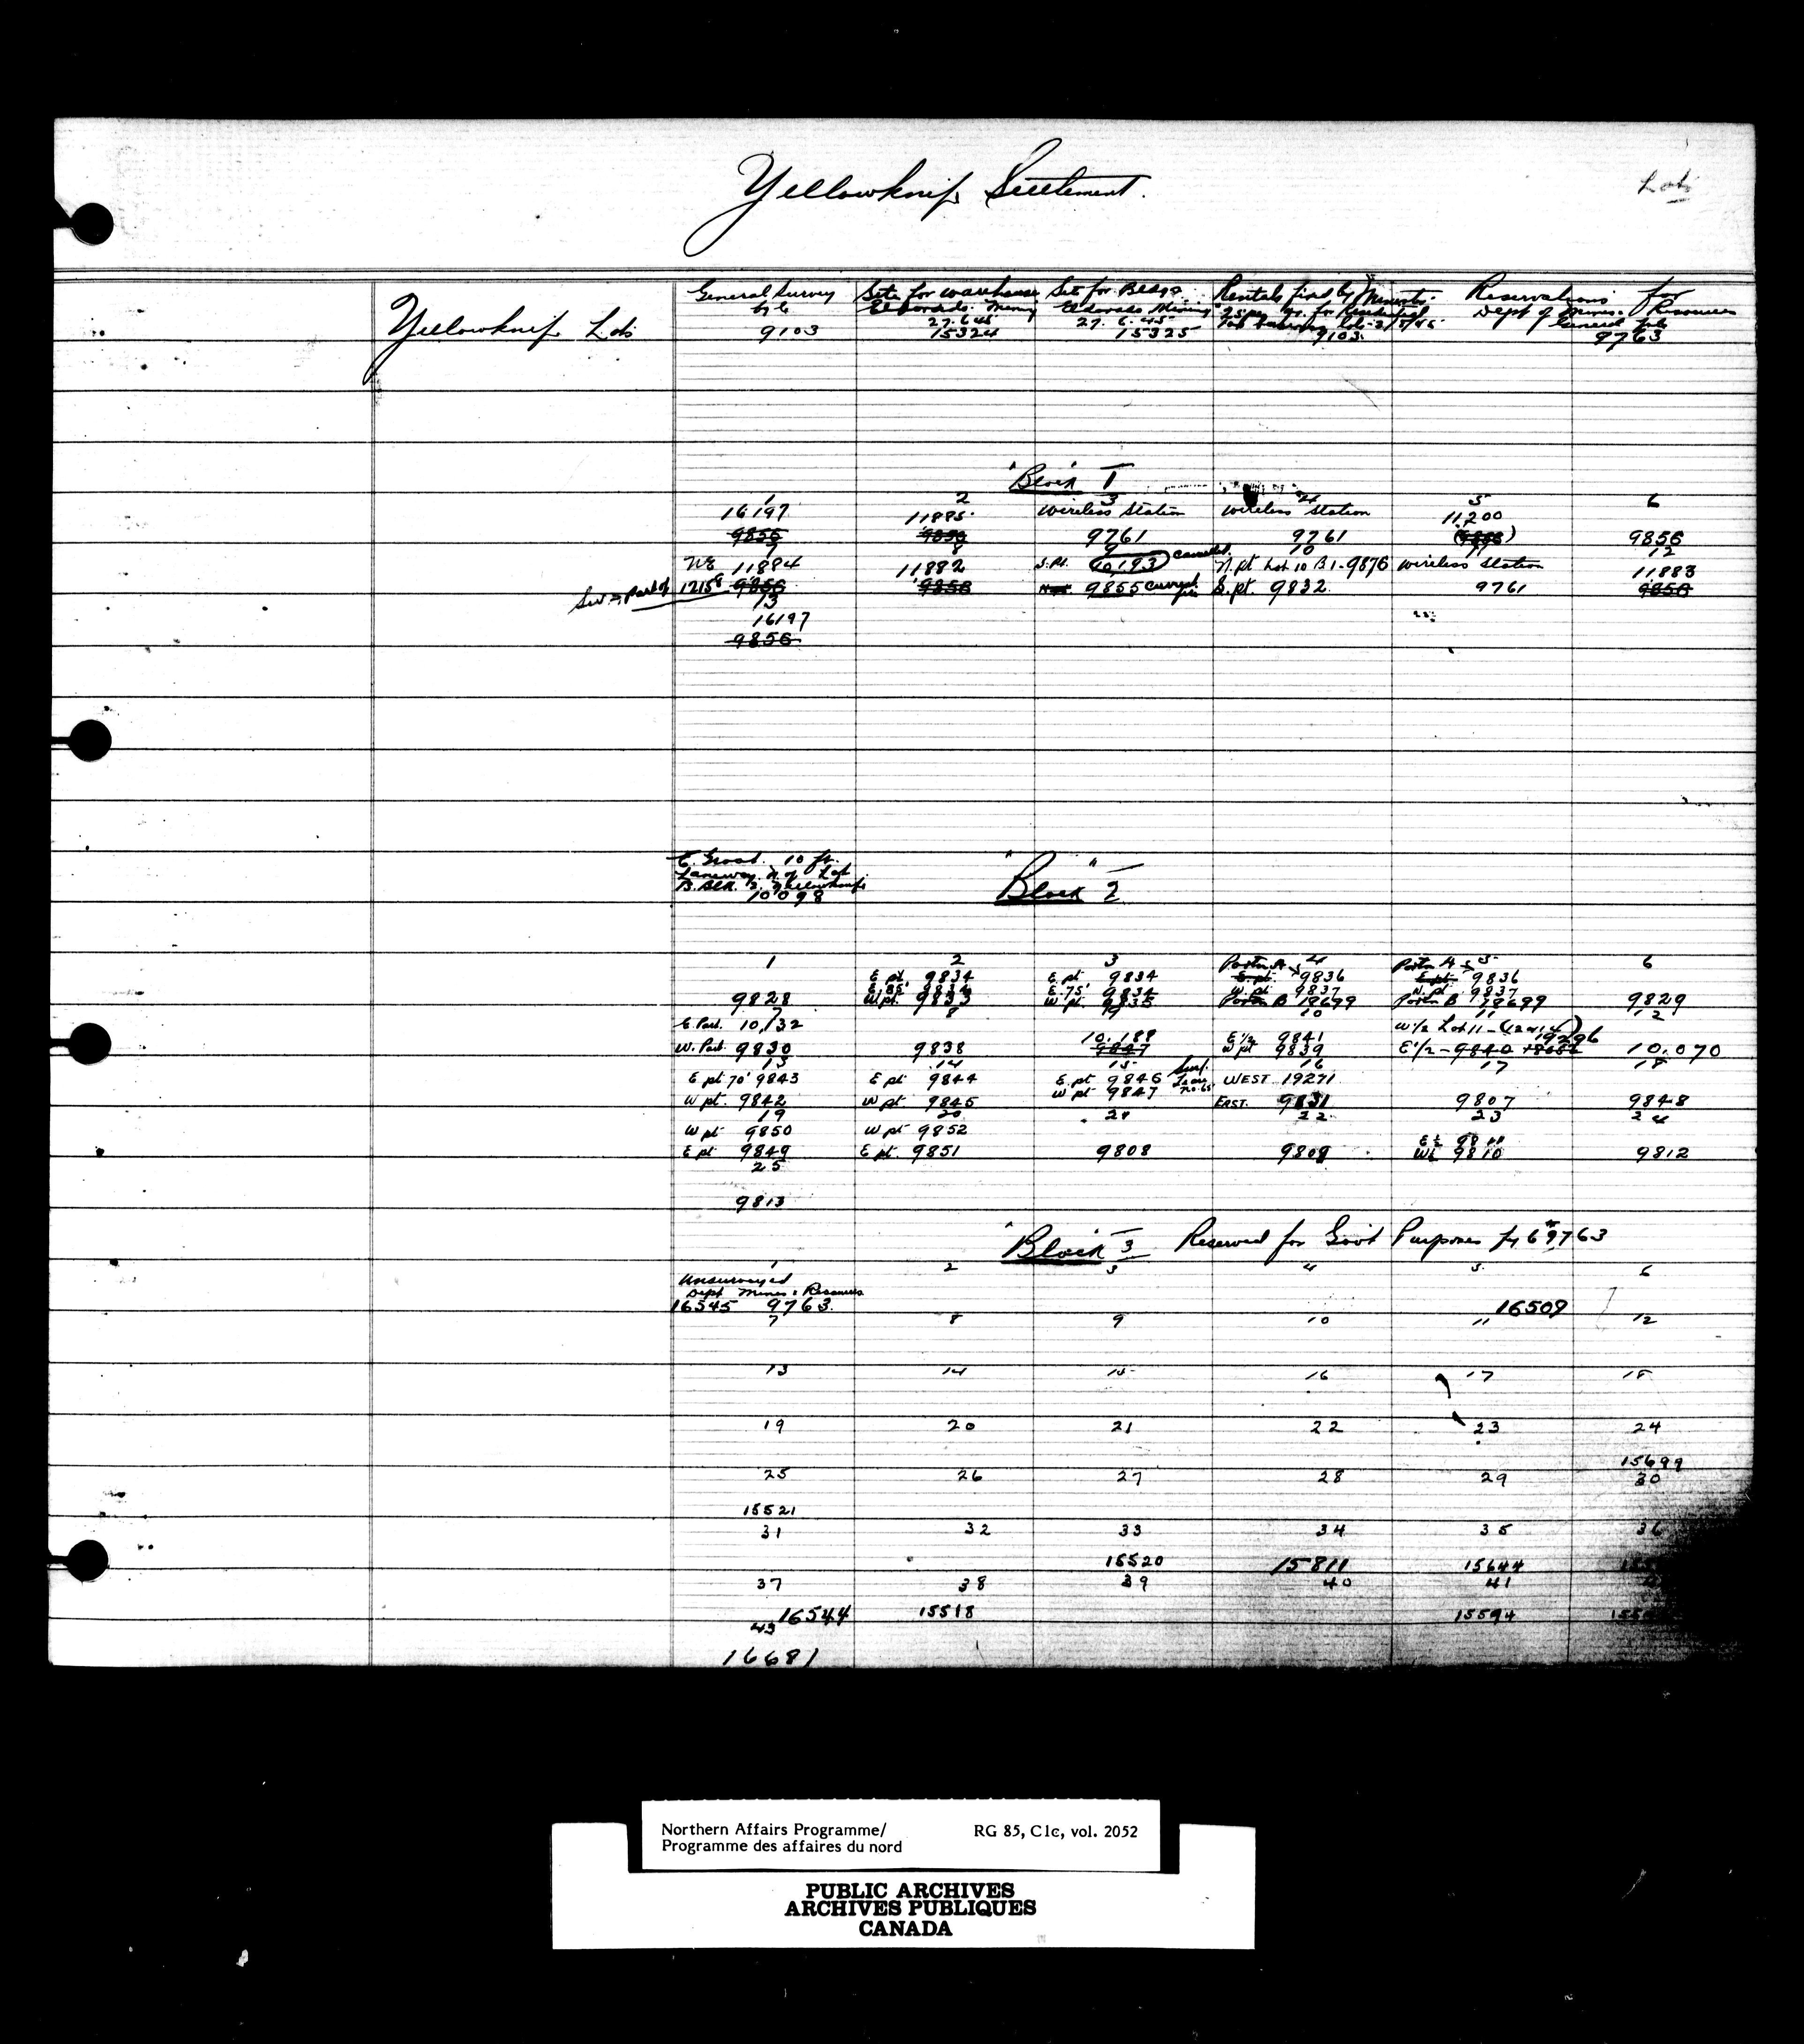 Yellowknife Settlement.
Lots
Yellowknife Lots
General Survey
9103
Site for warehouse
Eldorado Mining
27.6.45
15324
Site for Bldgs.
Eldorado Mining
27. 6. 45
15325
Rentals fixed by Minister.
9103.
Reservations for
Dept of Mines & Resources
General file
9763
"Block" 1
1 2 3 4 5 6
16197 11885 Wireless Station Wireless Station 11,200
9856 9856 9761 9761 (9856) 9856
7 8 9 10 11 12
NE 11884 11882 S.Pt. 10,193 cancelled. N.pt Lot 10 B 1-9876 Wireless Station 11883
SW → Part of 12158 9856 9856 9855 S.pt. 9832 9761 9856
13
16197
9856
E. Groat. 10 ft.
Laneway N. of Lot
B. Blk. 2. Yellowknife
10098
"Block" 2
1 2 3 4 5 6
E pt 9834 E pt 9834 Portn A 9836 Portn A 9836
E. 85' 9834 E. 75' 9834 W. pt 9837 N. pt 9837
9828 W pt. 9833 W pt. 9835 Portn B 18699 Portn B 18699 9829
7 8 9 10 11 12
E. Part. 10,132 10,188 E 1/2 9841 W 1/2 Lot 11 - 19296
W. Part 9830 9838 9847 W pt 9839 E 1/2 - 9840 10,070
13 14 15 16 17 18
E pt 70' 9843 E pt 9844 E. pt 9846 WEST 19271
W pt 9847
W pt. 9842 W pt. 9845 EAST. 9831 9807 9848
19 20 21 22 23 24
W pt 9850 W pt 9852
E pt 9849 E pt. 9851 9808 9809 W½ 9810 9812
25
9813
"Block" 3 Reserved for Govt Purposes 9763
1 2 3 4 5 6
Unsurveyed
Dept Mines & Resources
16545 9763. 16509
7 8 9 10 11 12
13 14 15 16 17 18
19 20 21 22 23 24
15699
25 26 27 28 29 30
15521
31 32 33 34 35 36
15520 15811 15644
37 38 39 40 41
16544 15518 15594
43
16681
Northern Affairs Programme/
Programme des affaires du nord
RG 85, C1c, vol. 2052
PUBLIC ARCHIVES
ARCHIVES PUBLIQUES
CANADA